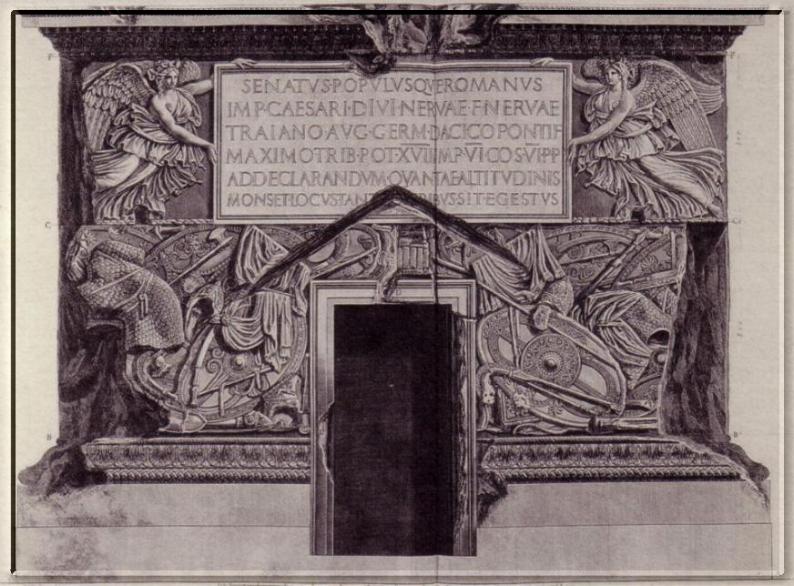 SENATVS·POPVLVSQVEROMANVS
IMP·CAESARI·DIVI·NERVAE·F·NERVAE
TRAIANO·AVG·GERM·DACICO·PONTIF
MAXIMOTRIB·POT·XVII·IMP·VI·COS·VI·PP
ADDECLARANDVM·QVANTAEALTITVDINIS
MONSETLOCVSTAN IBVS·SIT·EGESTVS